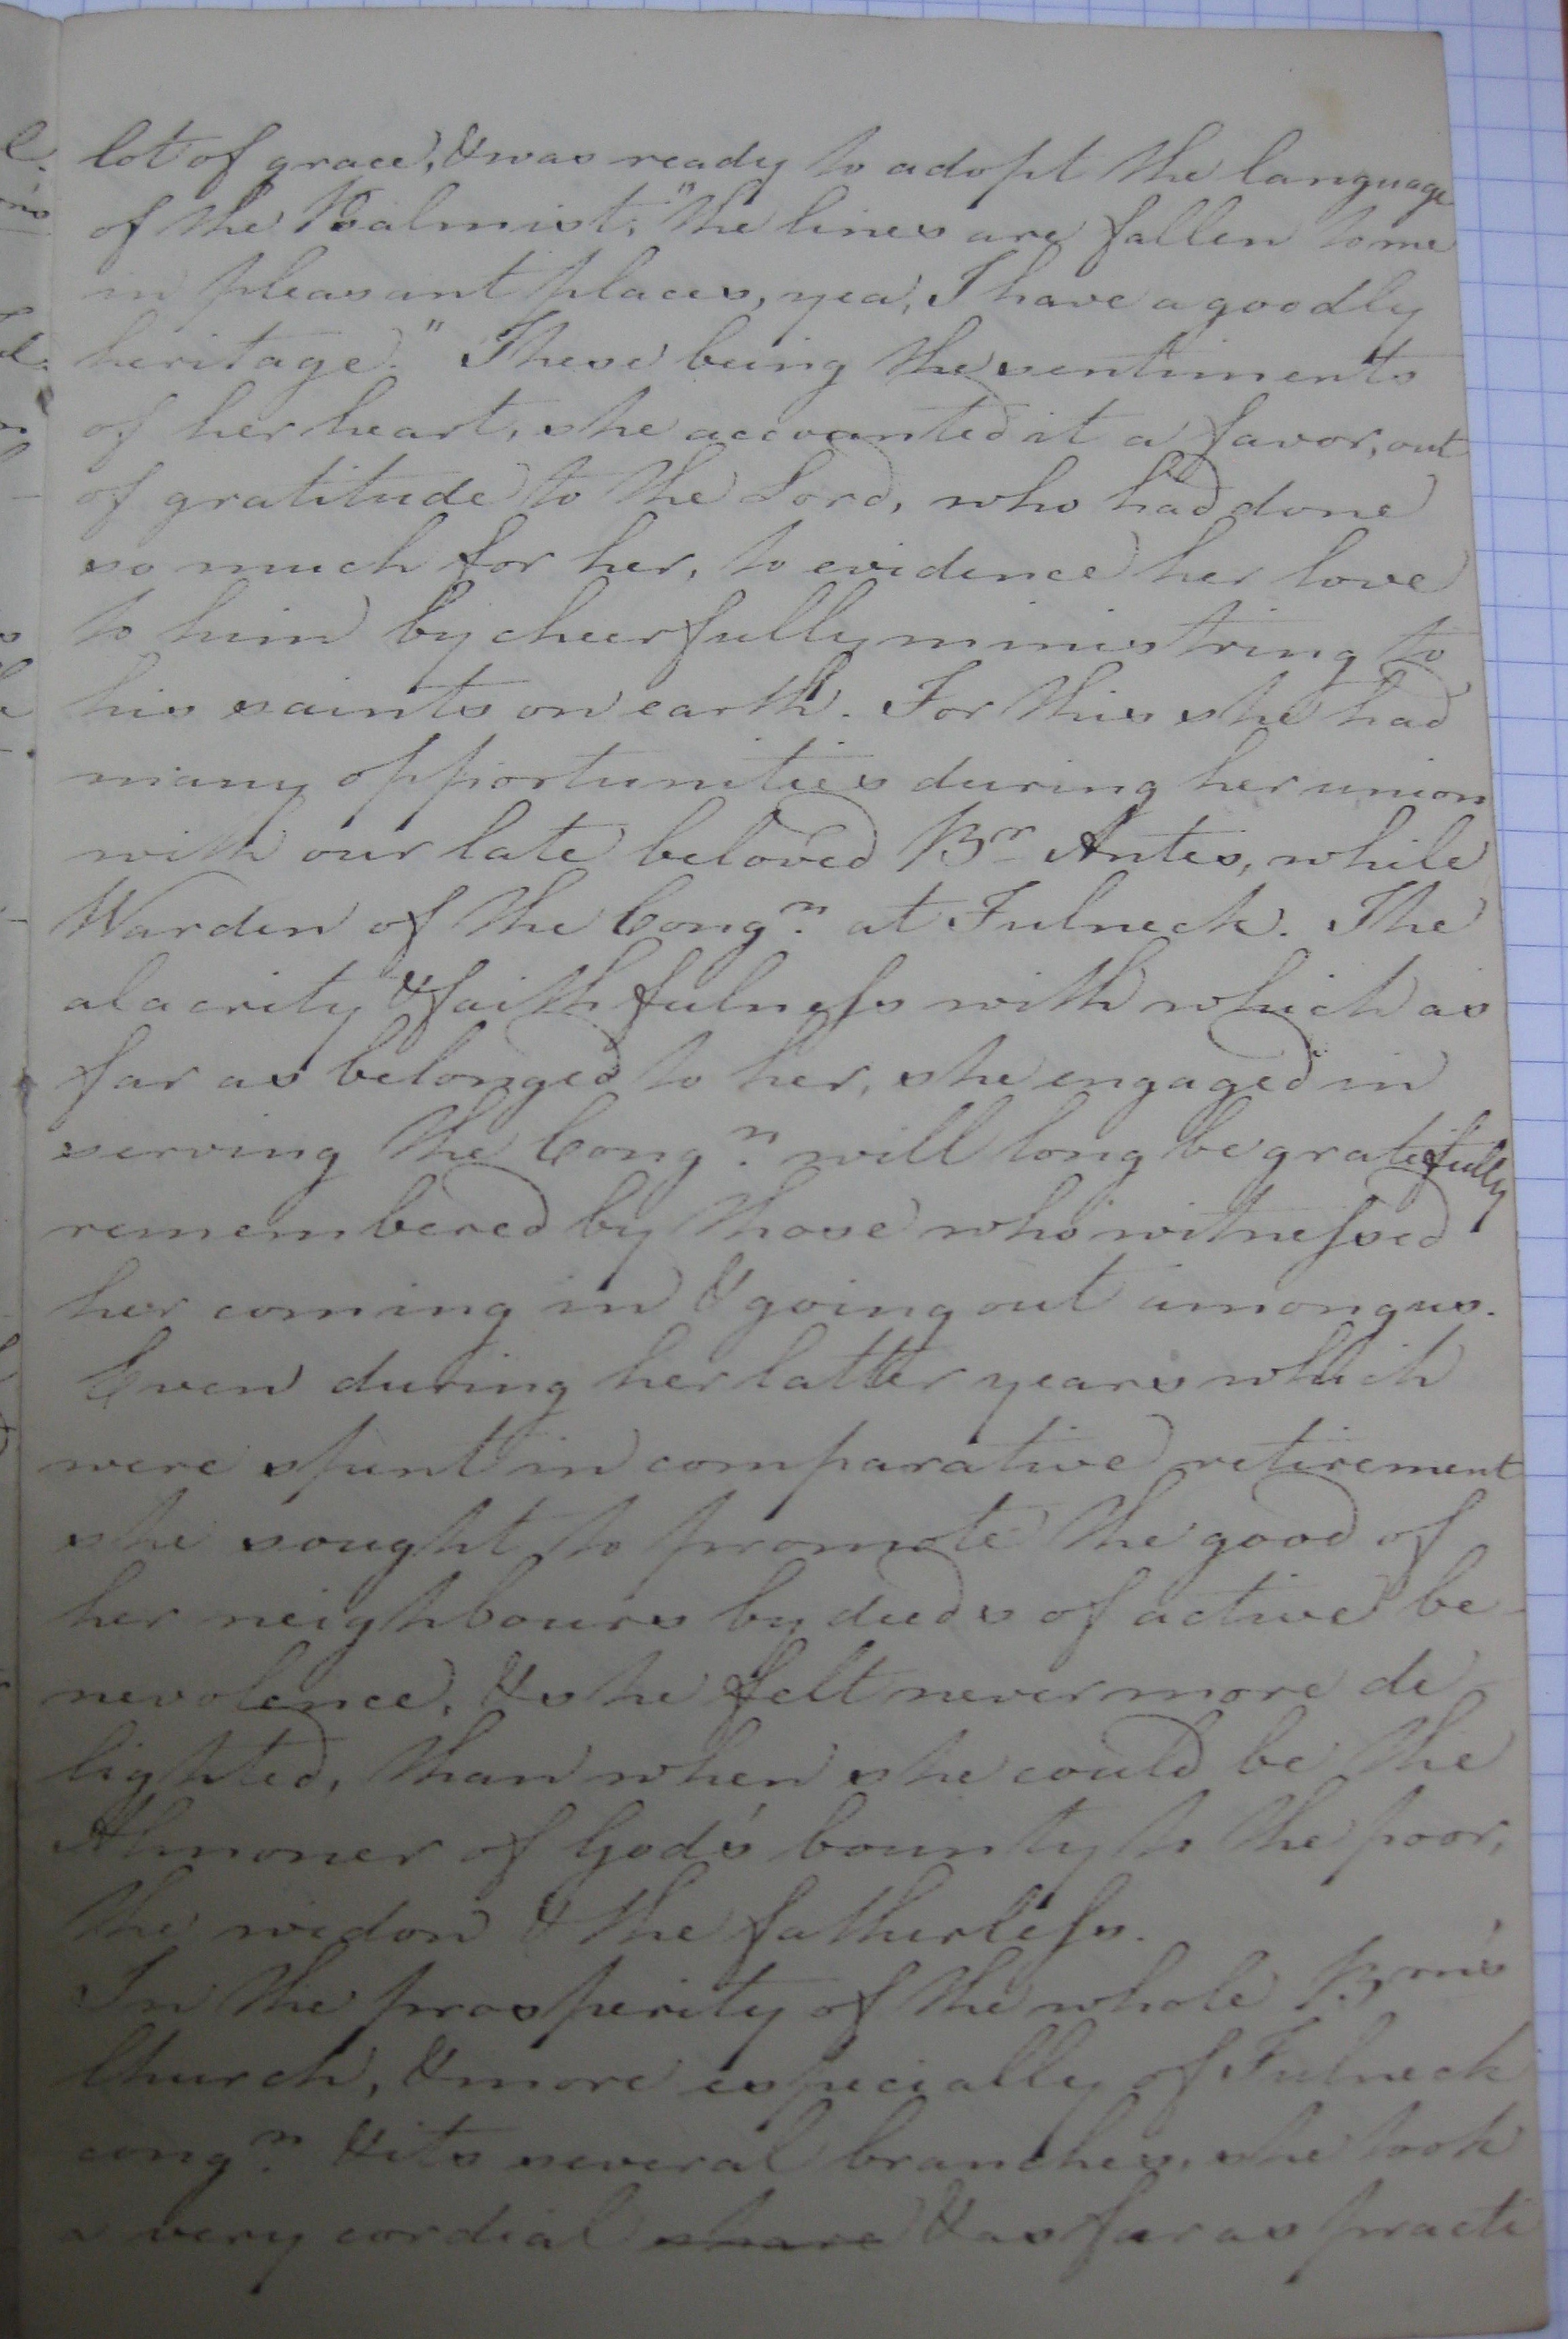 lot of grace, & was ready to adopt the language
of the Psalmist; "the lines are fallen to me
in pleasant places, yea, I have a goodly
heritage." These being the sentiments
of her heart, she accounted it a favor, out
of gratitude to the Lord, who had done
so much for her, to evidence her love
to him by cheerfully ministring to
his saints on earth. For this she had
many opportunities during her union
with our late beloved Br. Antes, while
Warden of the Congn. at Fulneck. The
alacrity & faithfulness with which as
far as belonged to her, she engaged in
serving the Congn. will long be gratefully
remembered by those who witnessed
her coming in & going out among us.
Even during her latter years which
were spent in comparative retirement
she sought to promote the good of
her neighbours by deeds of active be-
nevolence, & she felt never more de-
lighted, than when she could be the
Almoner of God's bounty to the poor,
the widow & the fatherless.
In the prosperity of the whole Brn's
Church, & more especially of Fulneck
congn. & its several branches, she took
a very cordial share & as far as practi